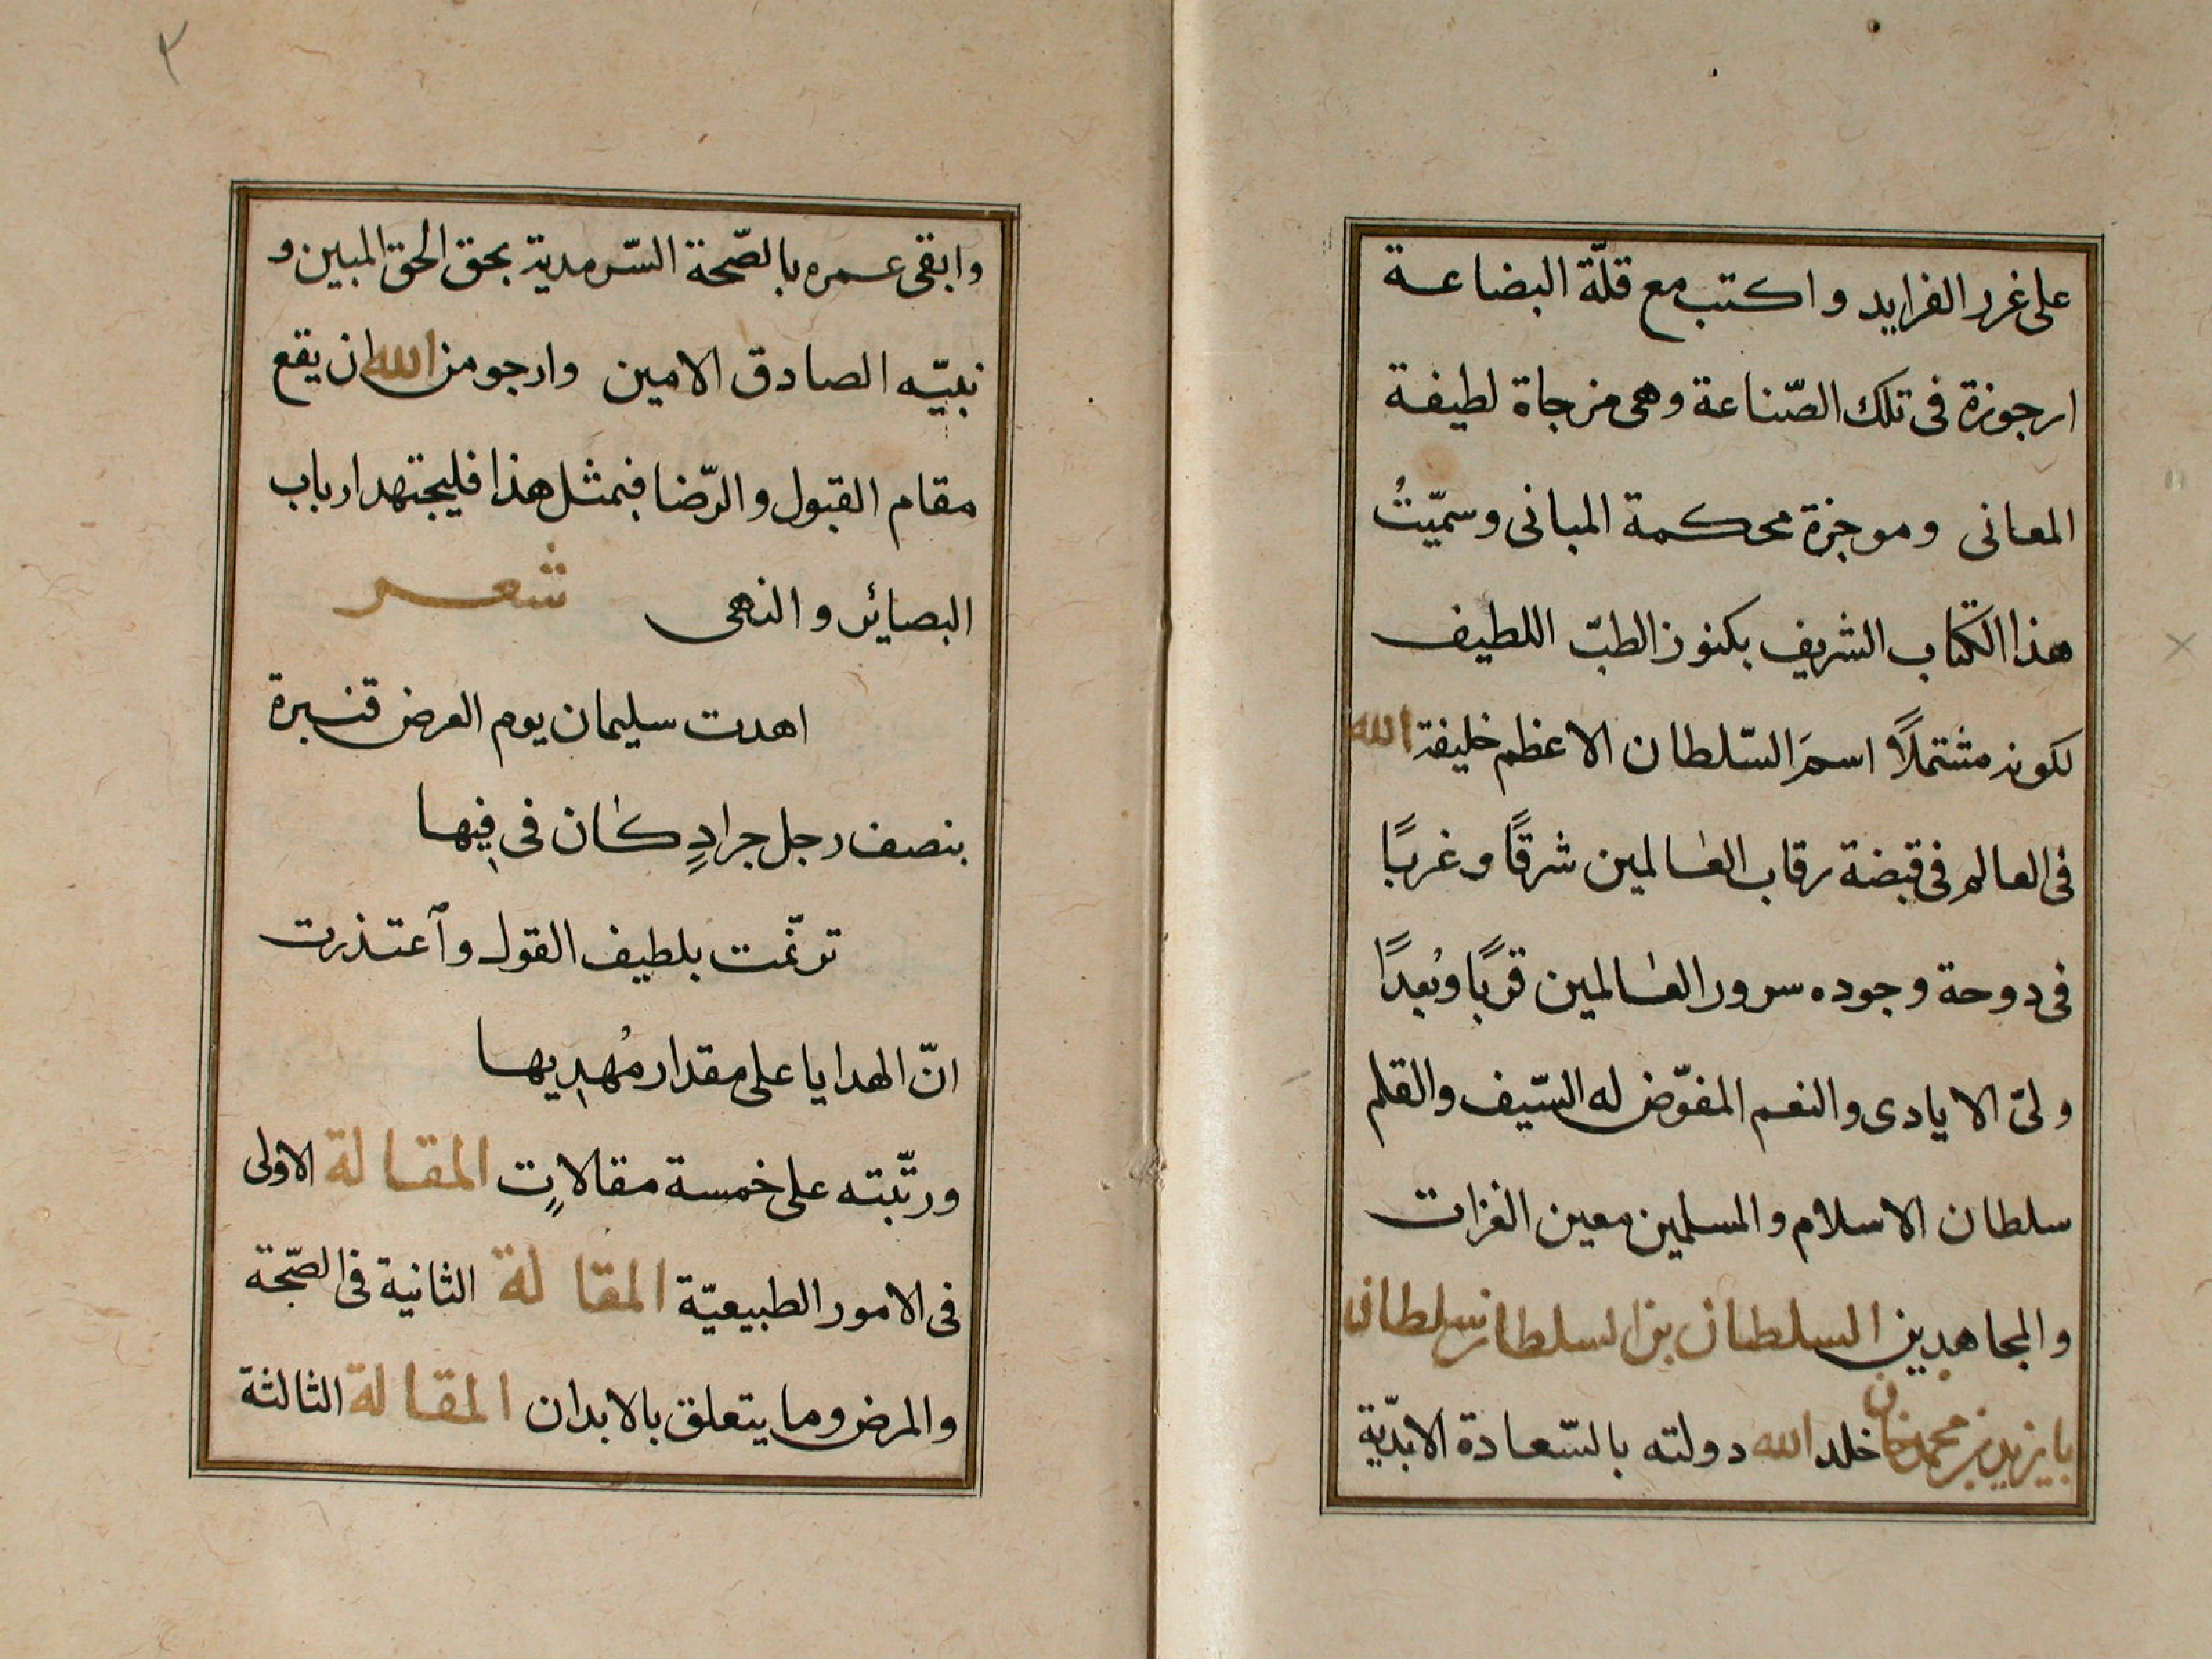 على غرر الفرايد واكتب مع قلّة البضاعة
ارجوزة فى تلك الصّناعة وهى مزجاة لطيفة
المعانى وموجزة محكمة المبانى وسمّيتُ
هذا الكتاب الشريف بكنوز الطبّ اللطيف
لكونه مشتملاً اسمَ السّلطان الاعظم خليفة الله
فى العالم فى قبضة رقاب العالمين شرقًا وغربًا
فى دوحة وجوده سرور العالمين قربًا وبُعدًا
ولىّ الايادى والنعم المفوّض له السّيف والقلم
سلطان الاسلام والمسلمين معين الغزات
والمجاهدين السلطان بن السلطان سلطان
بايزيد بن محمد خان خلد الله دولته بالسّعادة الابديّة
٣
وابقى عمره بالصّحة السّرمدية بحق الحق المبين و
نبيّه الصادق الامين وارجو من الله ان يقع
مقام القبول والرّضا فبمثل هذا فليجتهد ارباب
البصائر والنهى شعر
اهدت سليمان يوم العرض قنبرة
بنصف رجل جرادٍ كان فى فِيها
ترنّمت بلطيف القول وآعتذرت
انّ الهدايا على مقدار مُهدِيها
ورتّبته على خمسة مقالاتٍ المقالة الاولى
فى الامور الطبيعيّة المقالة الثانية فى الصّحة
والمرض وما يتعلق بالابدان المقالة الثالثة